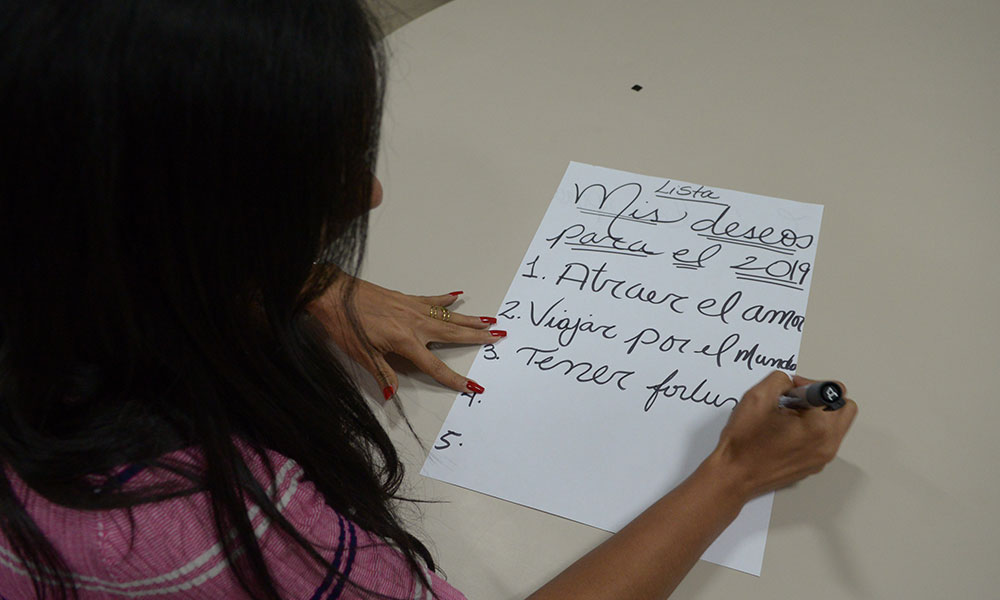 Lista
Mis deseos
para el 2019
1. Atraer el amor
2. Viajar por el Mundo
3. Tener fortun
4.
5.